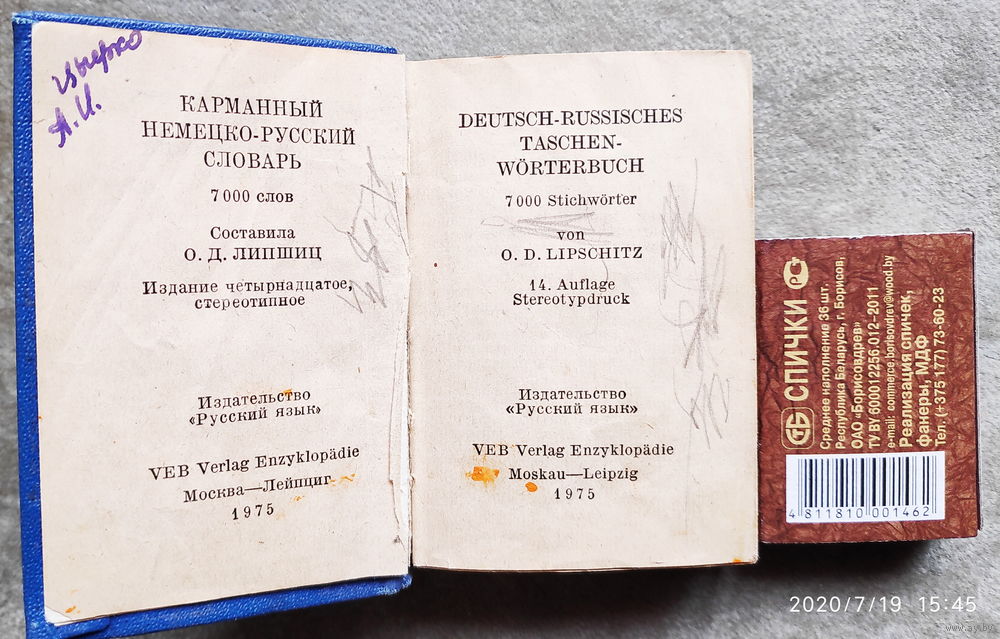 А.И.
КАРМАННЫЙ
НЕМЕЦКО-РУССКИЙ
СЛОВАРЬ
7 000 слов
Составила
О. Д. ЛИПШИЦ
Издание четырнадцатое,
стереотипное
Издательство
«Русский язык»
VEB Verlag Enzyklopädie
Москва—Лейпциг
1975
DEUTSCH-RUSSISCHES
TASCHEN-
WÖRTERBUCH
7 000 Stichwörter
von
O. D. LIPSCHITZ
14. Auflage
Stereotypdruck
Издательство
«Русский язык»
VEB Verlag Enzyklopädie
Moskau—Leipzig
1975
СПИЧКИ РСТ
Среднее наполнение 36 шт.
Республика Беларусь, г. Борисов,
ОАО «Борисовдрев»
ТУ BY 600012256.012-2011
e-mail: commerce.borisovdrev@wood.by
Реализация спичек,
фанеры, МДФ
Тел. (+375 177) 73-60-23
4 811810 001462
2020/7/19 15:45
www.ay.by